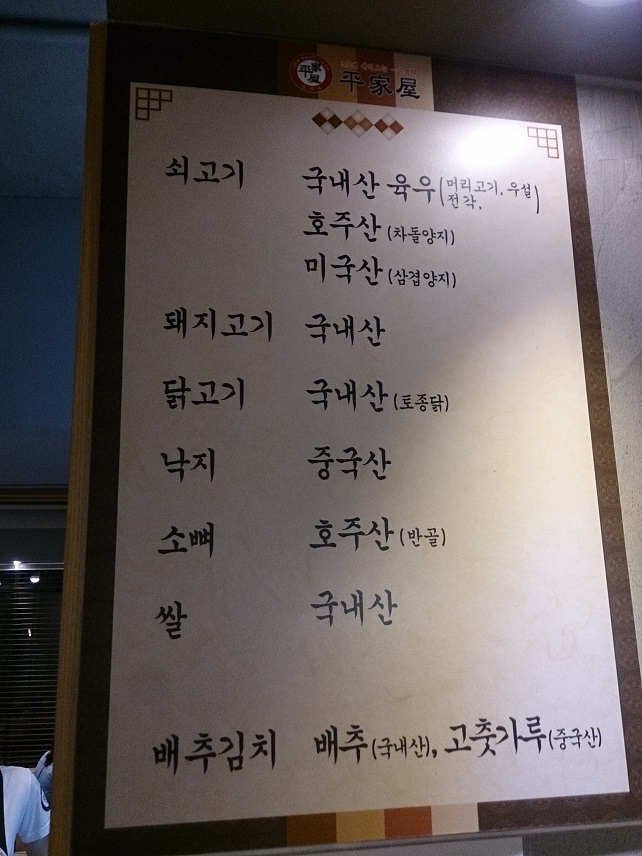 平家屋
平家屋
쇠고기 국내산 육우(머리고기, 우설
전각,)
호주산 (차돌양지)
미국산 (삼겹양지)
돼지고기 국내산
닭고기 국내산 (토종닭)
낙지 중국산
소뼈 호주산 (반골)
쌀 국내산
배추김치 배추(국내산), 고춧가루(중국산)